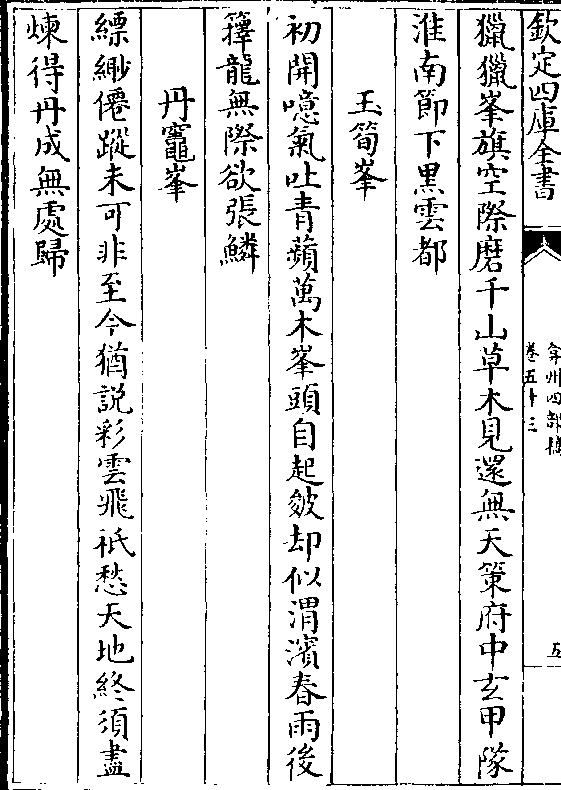 欽定四庫全書
弇州四部稿
卷五十三
五
獵獵峯旗空際磨千山草木見還無天策府中玄甲隊
淮南節下黒雲都
玉筍峯
初開噫氣吐青蘋萬木峯頭自起皴却似渭濱春雨後
籜龍無際欲張鱗
丹竈峯
縹緲僊蹤未可非至今猶説彩雲飛祇愁天地終須盡
煉得丹成無處歸